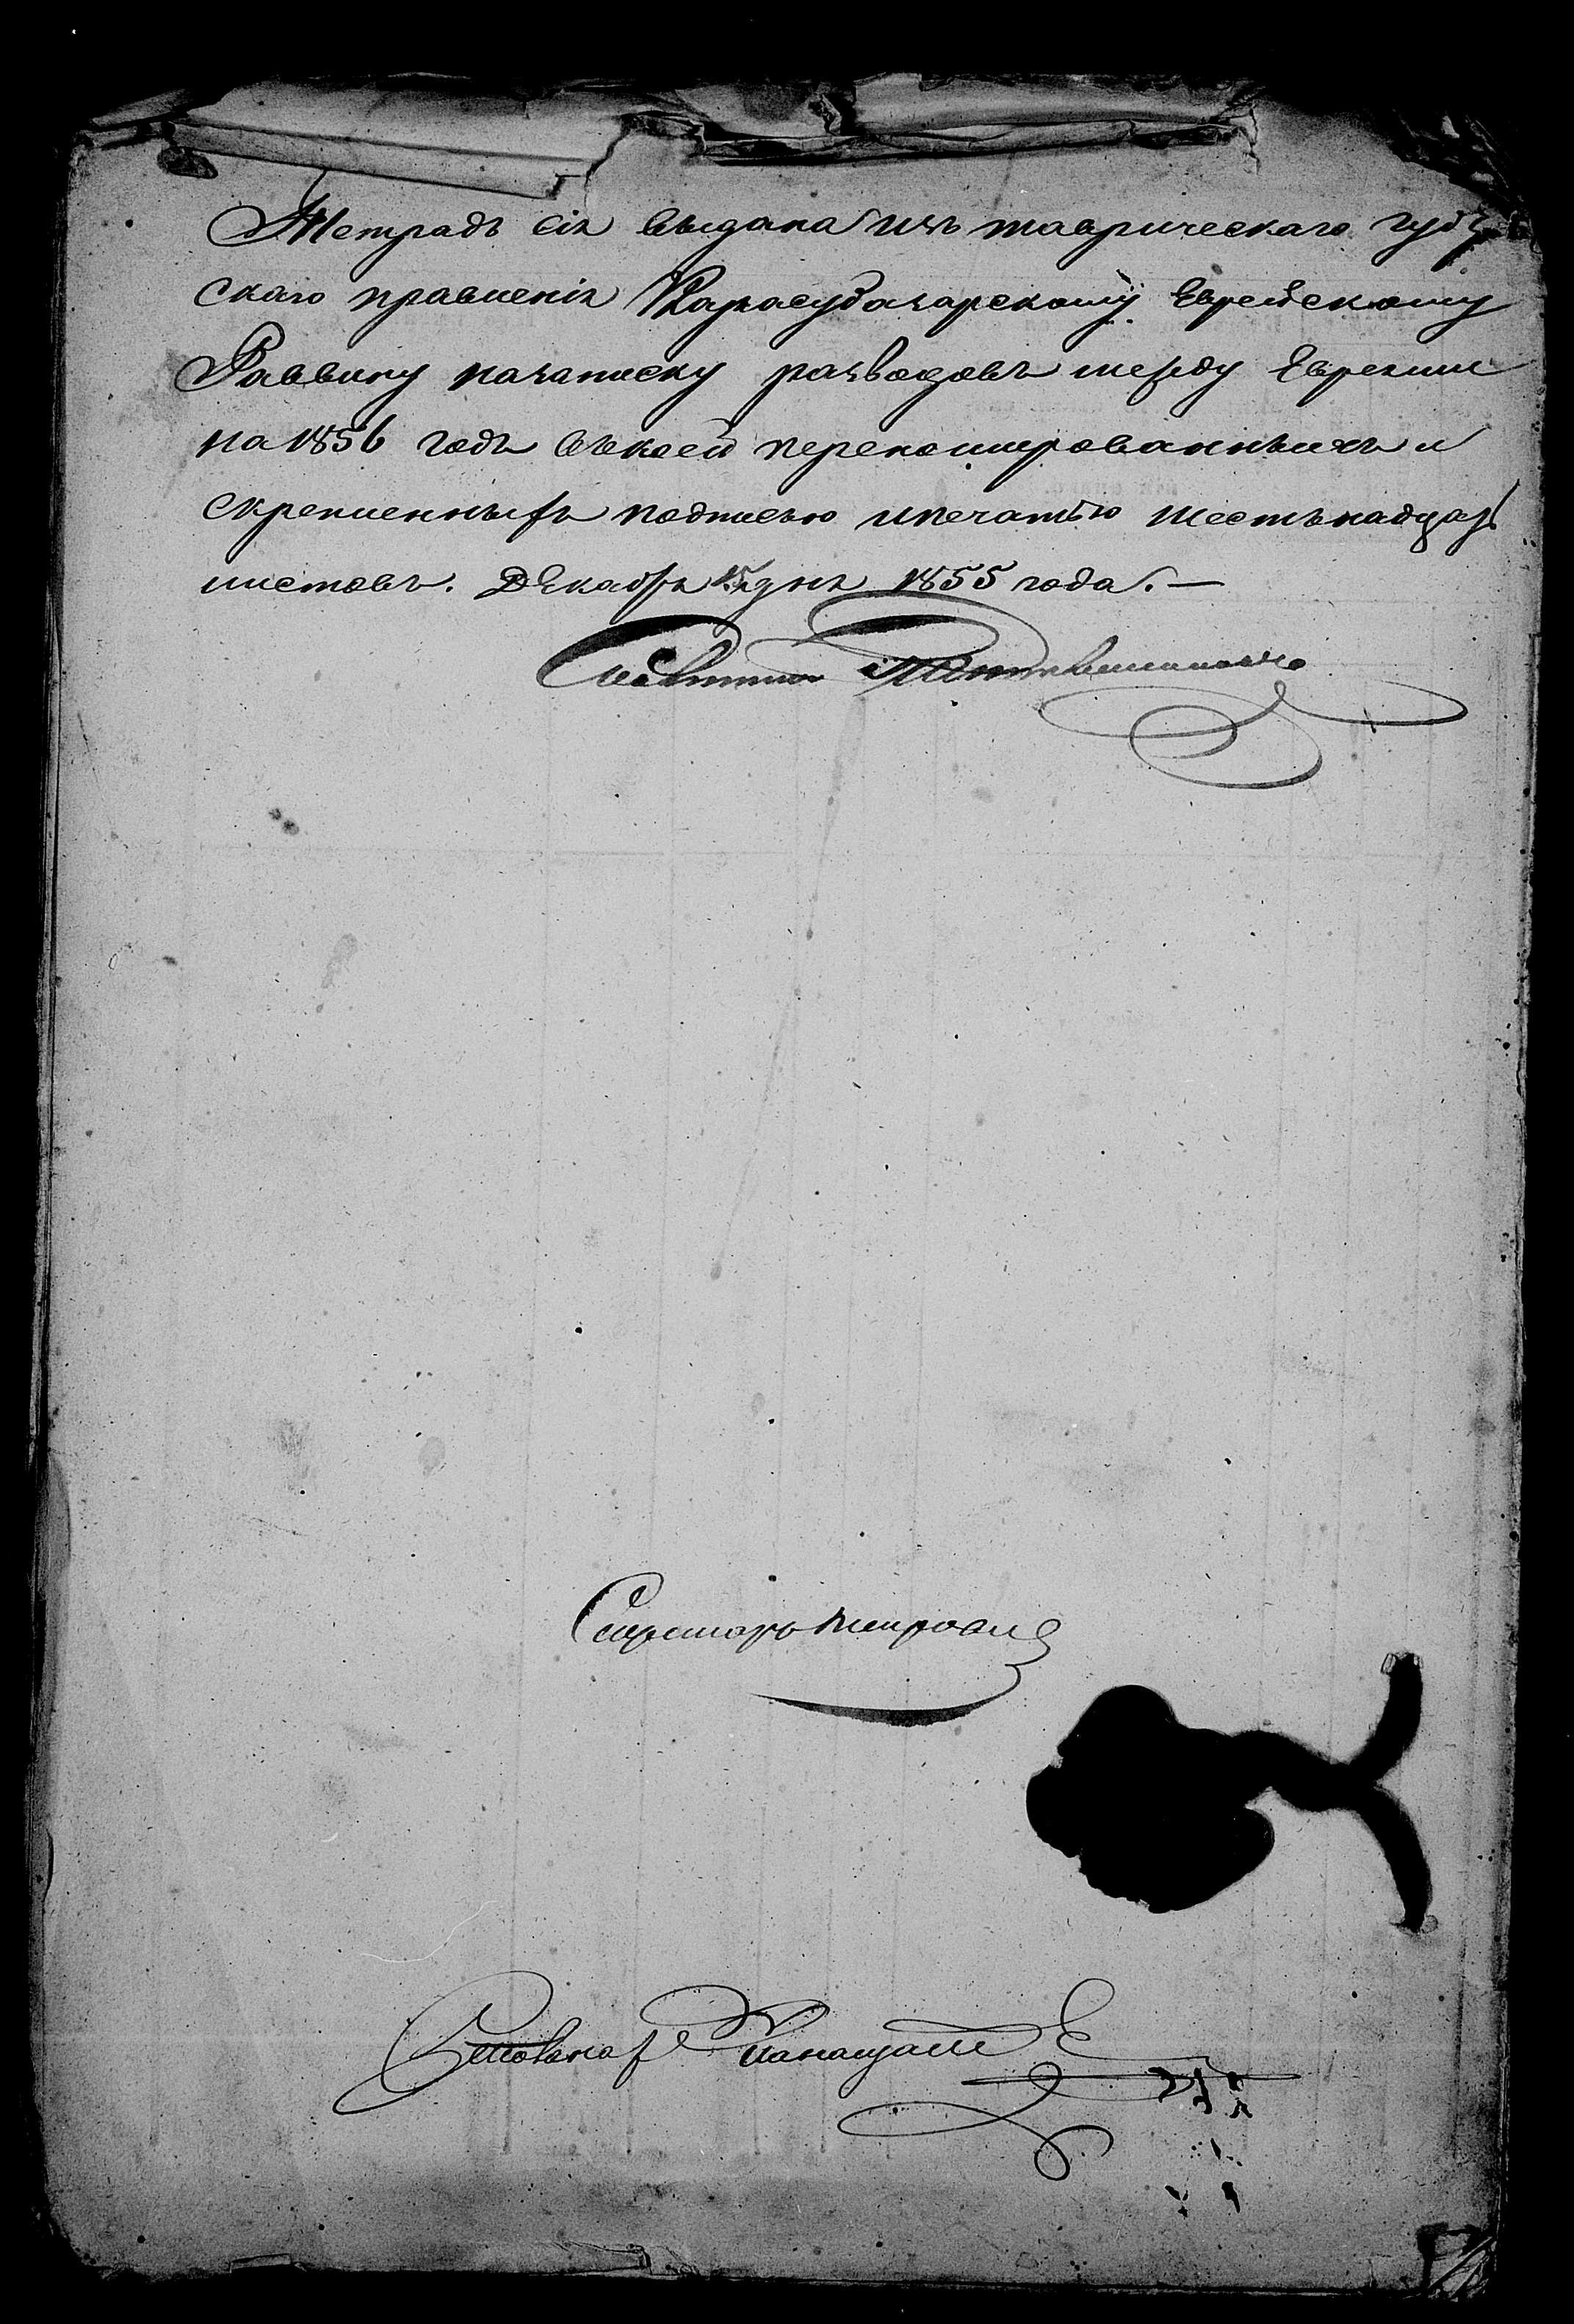 Тетрадь сія выдана изъ таврическаго губер
скаго правленія Карасубазарскому Еврейскому
Раввину назаписку разводовъ между Евреями
на 1856 годъ въ коей переномированныхъ и
скрепленныхъ подписью ипечатью шестьнадцать
листовъ. Декабря 15 дня 1855 года. —
Советникъ
Секретарь Петровъ